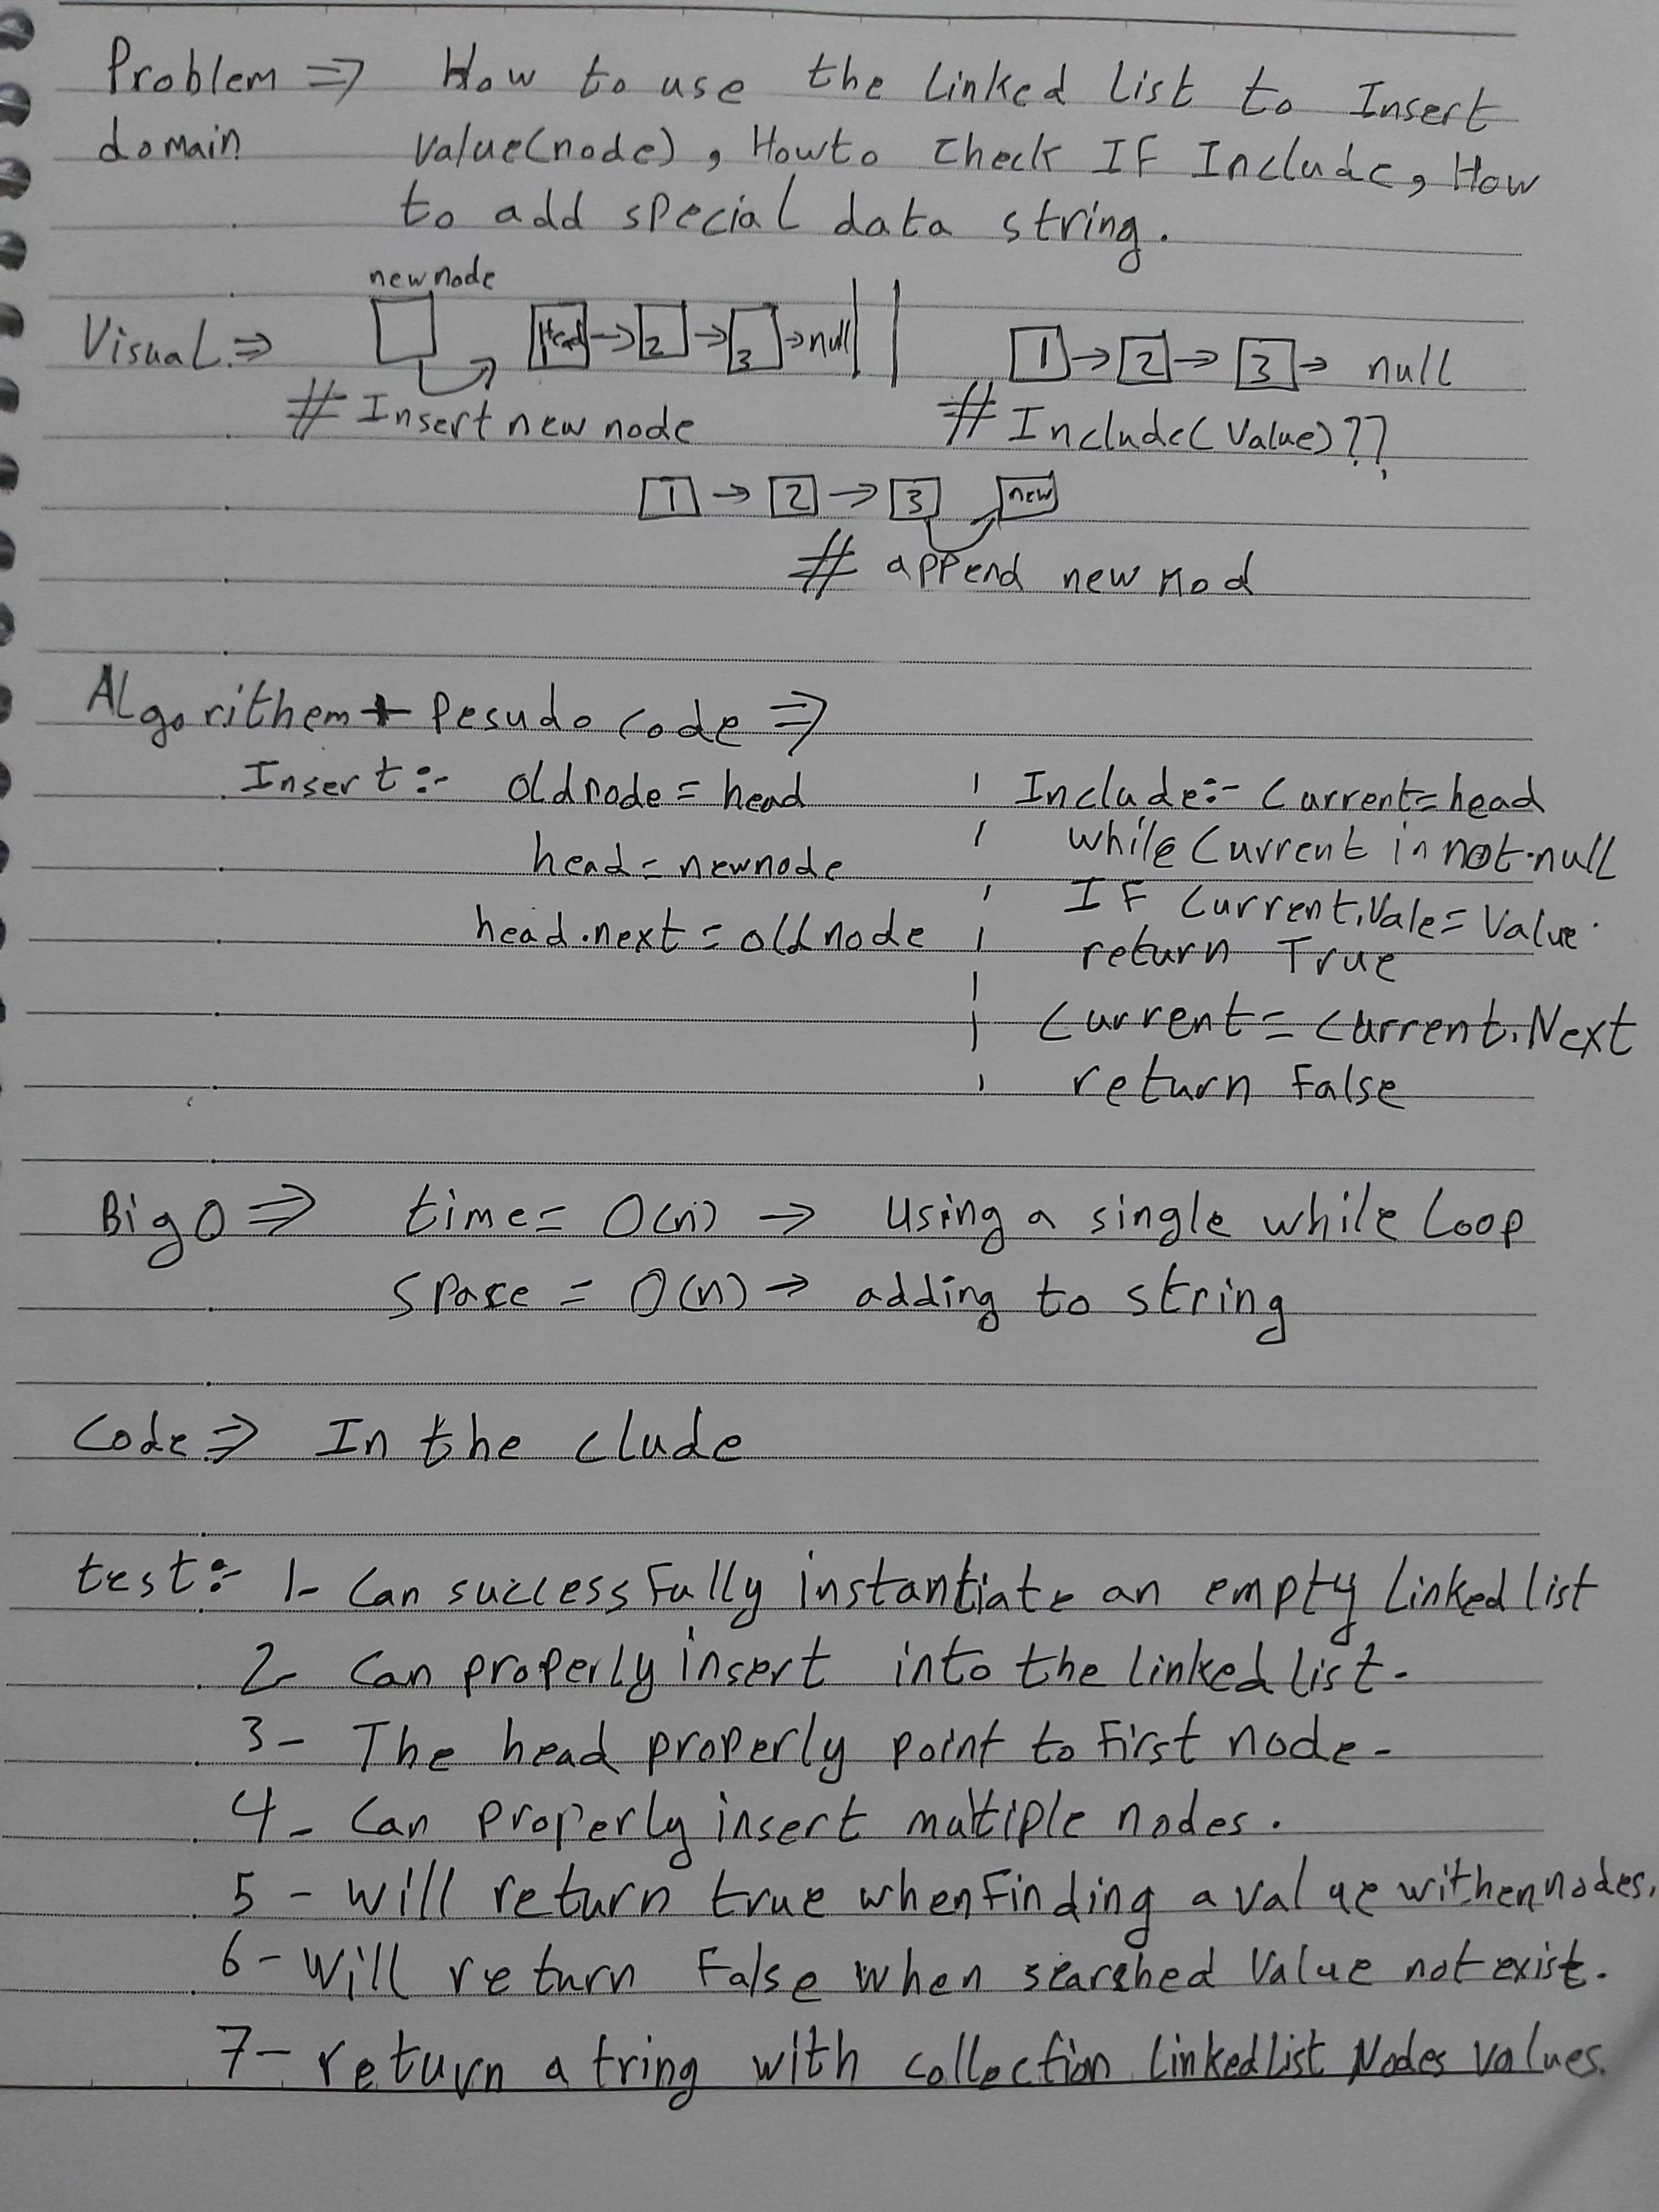 Problem => How to use the Linked List to Insert
domain value(node), How to check IF Include, How
to add special data string.
new node
Visual => Head 1 → 2 → 3 → null 1 → 2 → 3 → null
# Insert new node # Include(Value)??
1 → 2 → 3 new
# append new nod
Algorithem + Pesudo code =>
Insert:- old node = head
head = newnode
head.next = old node
Include:- Current = head
while Current in not null
IF Current.Vale = Value
return True
Current = Current.Next
return False
Big O => time = O(n) → Using a single while Loop
space = O(n) → adding to string
Code => In the clude
test:- 1- Can successfully instantiate an empty Linked list
2- Can properly insert into the linked list-
3- The head properly point to First node-
4- Can properly insert multiple nodes.
5- will return true when Finding a value withen nodes.
6- Will return False when searched Value not exist.
7- return a tring with collection Linked list Nodes values.